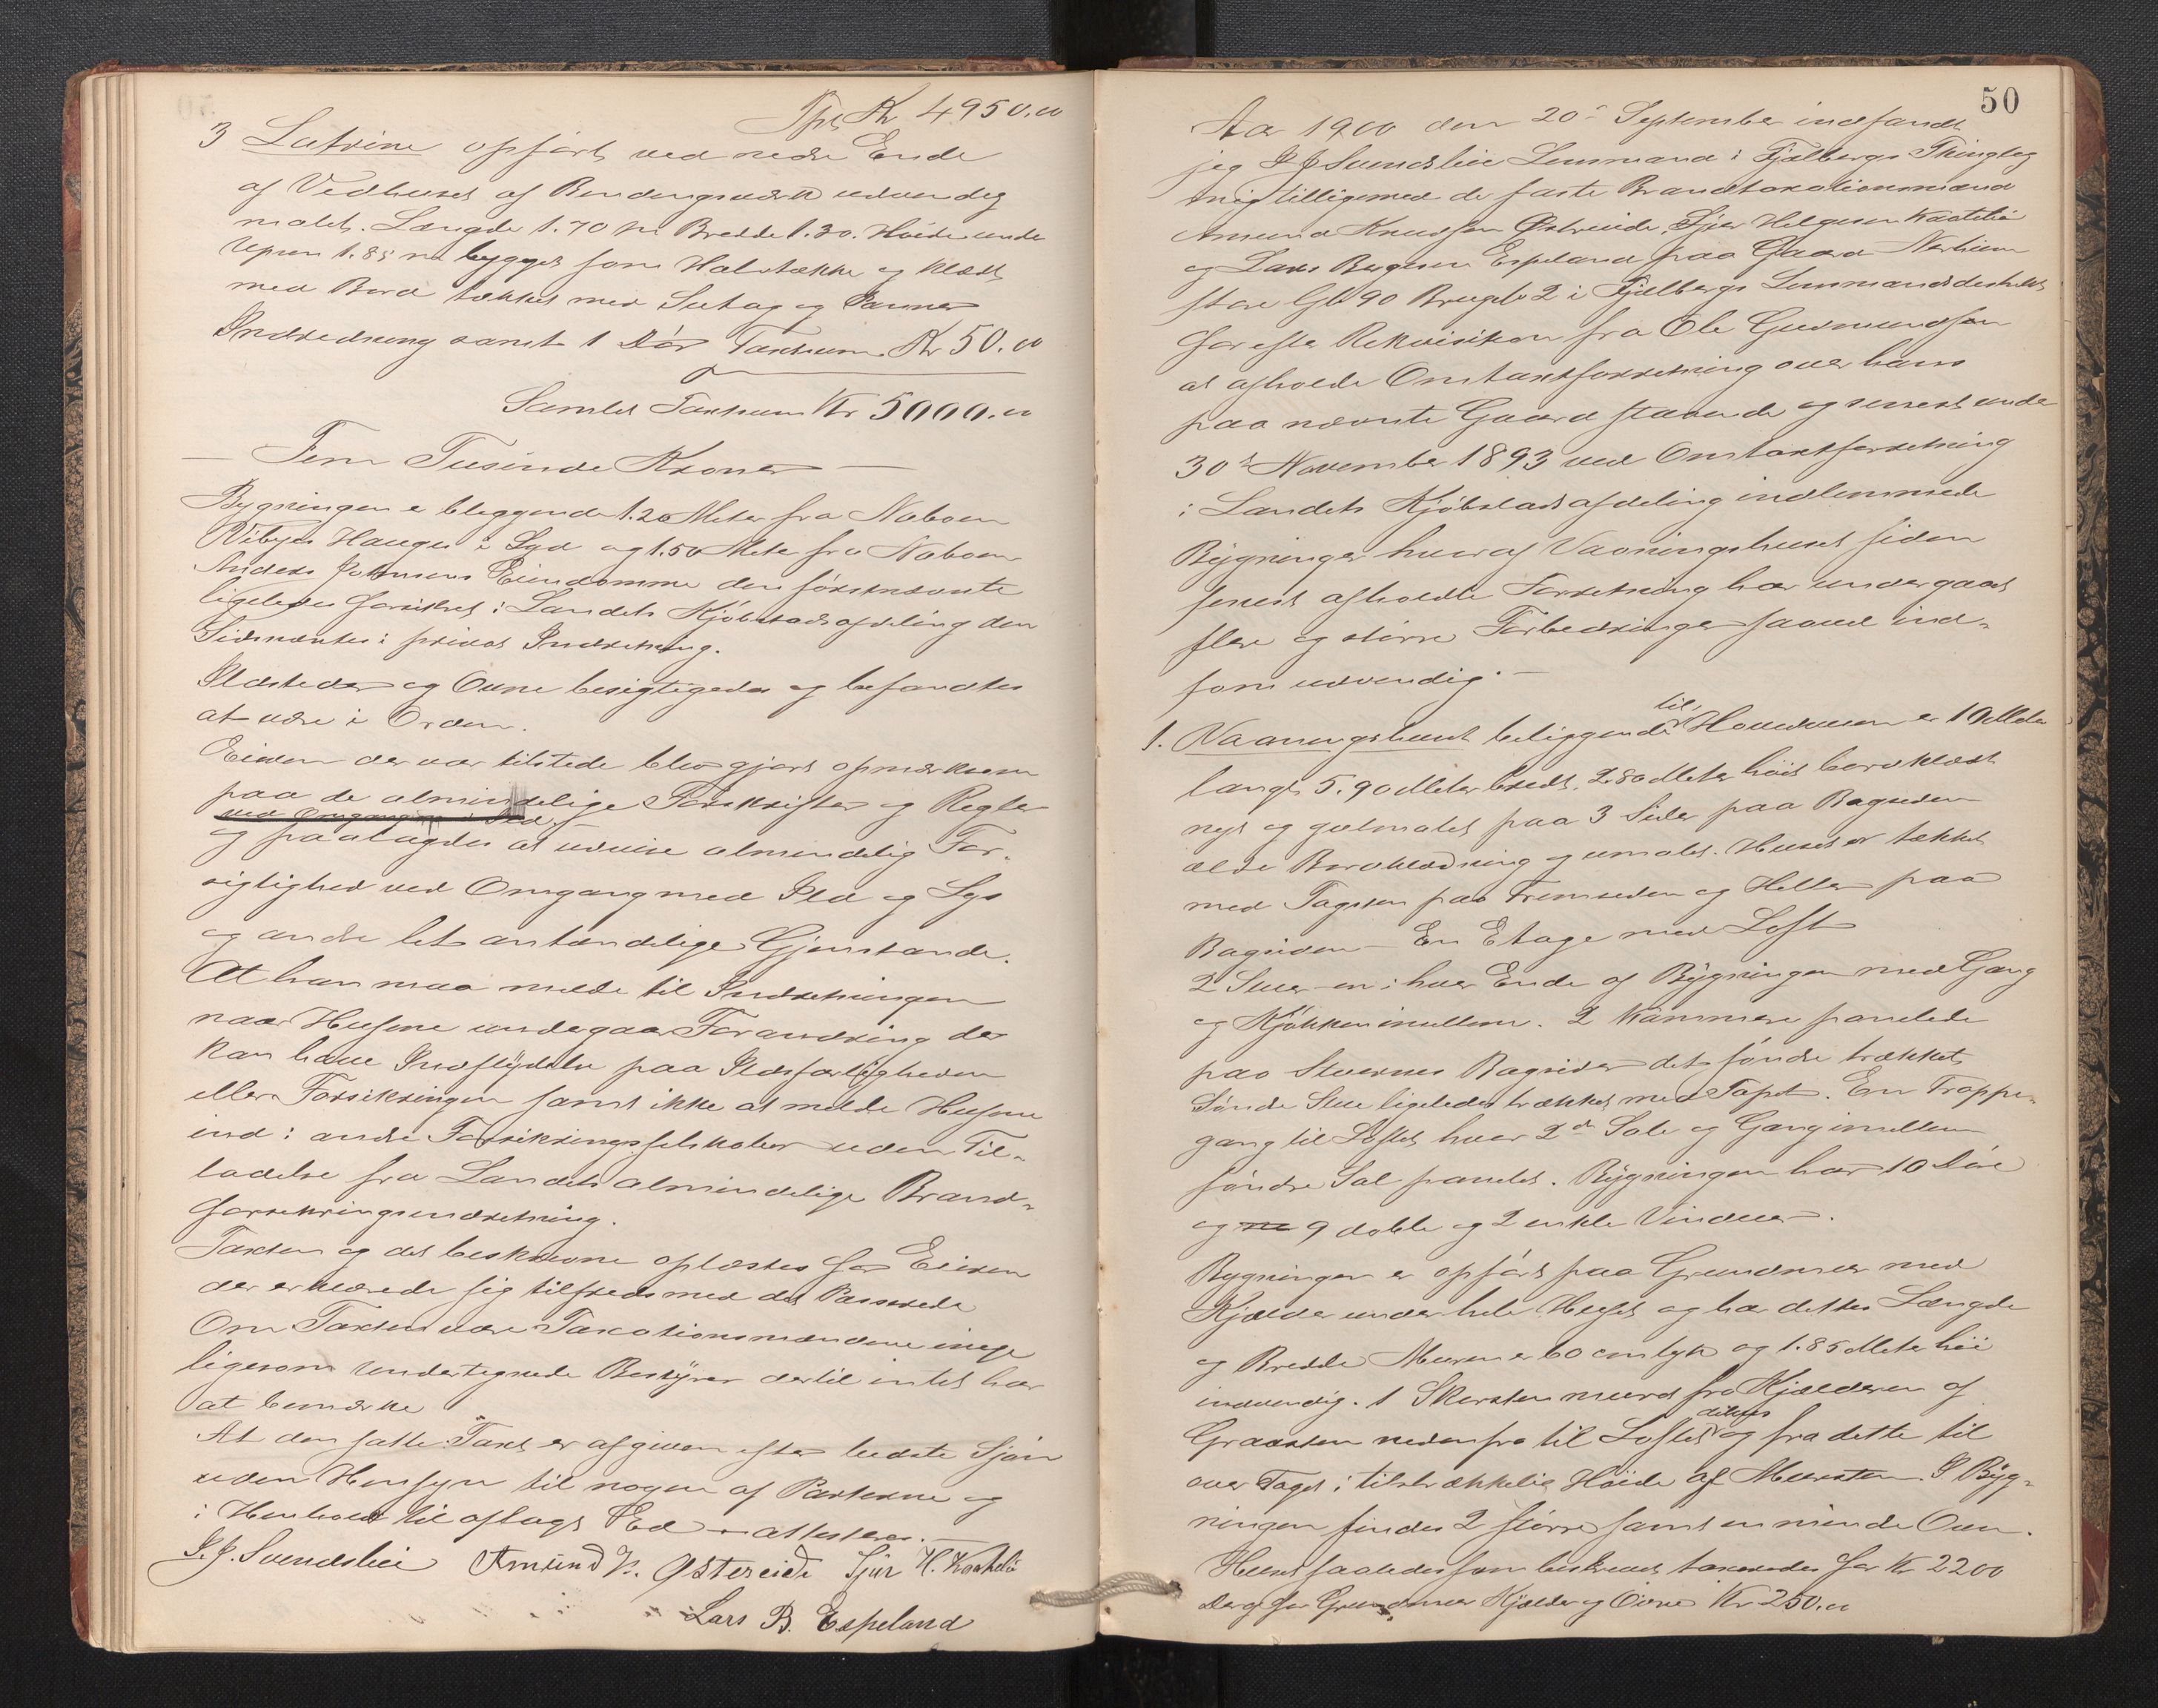 Tpt Kr 4950.00
3 Latrine opført ved nedre Ende
af Vedhuset af Bindingsværk udvendig
malet. Længde 1.70 m Bredde 1.30. Høide under
Upsen 1.85 m bygget som Halvtække og klædt
med Bord tækket med Sutag og Panner
Indredning samt 1 Dør Taxtsum Kr 50.00
Samlet Taxtsum Kr 5000.00
— Fem Tusinde Kroner —
Bygningen er beliggende 1.20 Meter fra Naboen
Hauges i Syd og 1.50 Meter fra Naboen
Anders Johnsens Eiendomme den førstnævnte
ligeledes forsikret i Landets Kjøbstadsafdeling den
Sidsnævnte i privat Indretning.
Ildsteder og Ovne besigtigedes og befandtes
at være i Orden.
Eieren der var tilstede blev gjort opmærksom
paa de almindelige Forskrifter og Regler
og paalagdes at udvise almindelig For-
sigtighed ved Omgang med Ild og Lys
og andre let antændelige Gjenstande.
At han maa melde til Indretningen
naar Husene undergaar Forandring der
kan have Indflydelse paa Ildsfarligheden
eller Forsikringen samt ikke at melde Husene
ind i andre Forsikringsselskaber uden Til-
ladelse fra Landets almindelige Brand-
forsikringsindretning.
Taxten og det beskrevne oplæstes for Eieren
der erklærede sig tilfreds med det Passerede
Om Taxten vare Taxationsmændene enige
ligesom undertegnede Bestyrer dertil intet har
at bemærke
At den satte Taxt er afgiven efter bedste Skjøn
uden Hensyn til nogen af Parterne og
i Henhold til aflagt Ed attesteres.
J. J. Svendsbøe Amund K. Østereide Sjur H.
Lars B. Espeland
50
Aar 1900 den 20de September indfandt
jeg J J Svendsbøe Lensmand i Fjelbergs Thinglag
mig tilligemed de faste Brandtaxationsmænd
Amund Knudsen Østreide, Sjur Helgesen
og Lars Bergesen Espeland paa Gaard
store Gb 90 Brugsb 2 i Fjelbergs Lensmandsdistrikt
for efter Rekvisition fra Ole Gudmundsen
at afholde Omtaxtforretning over hans
paa nævnte Gaard staaende og senest under
30te November 1893 ved Omtaxtforretning
i Landets Kjøbstadsafdeling indlemmede
Bygninger hvoraf Vaaningshuset siden
senest afholdte Forretning har undergaaet
flere og større Forbedringer saavel ind-
som udvendig. —
1. Vaaningshuset beliggende til Hovedveien er 10 Meter
langt 5.90 Meter bredt, 2.80 Meter høit bordklædt
nyt og gulmalet paa 3 Sider paa Bagsiden
ældre Bordklædning og umalet. Huset er tækket
med Tagsten paa Fremsiden og Heller paa
Bagsiden — En Etage med Loft
2 Stuer en i hver Ende af Bygningen med Gang
og Kjøkken imellem. 2 Kammere panelede
paa Stuernes Bagsider det søndre trækket
Søndre Stue ligeledes trækket med Tapet. En Trappe-
gang til Loftet hvor 2de Sale og Gang imellem
søndre Sal panelet. Bygningen har 10 Døre
og 9 doble og 2 enkle Vinduer.
Bygningen er opført paa Grundmur med
Kjælder under hele Huset og har dettes Længde
og Bredde Muren er 60 cm tyk og 1.85 Meter høi
indvendig. 1 Skorsten muret fra Kjælderen af
Graasten nedenfra til Loftet og fra dette til
over Taget i tilstrækkelig Høide af Mursten. I Byg-
ningen findes 2 større samt en mindre Ovn.
Huset saaledes som beskrevet taxeredes for Kr 2200
Deraf for Grundmur Kjælder og Ovne Kr 250.00